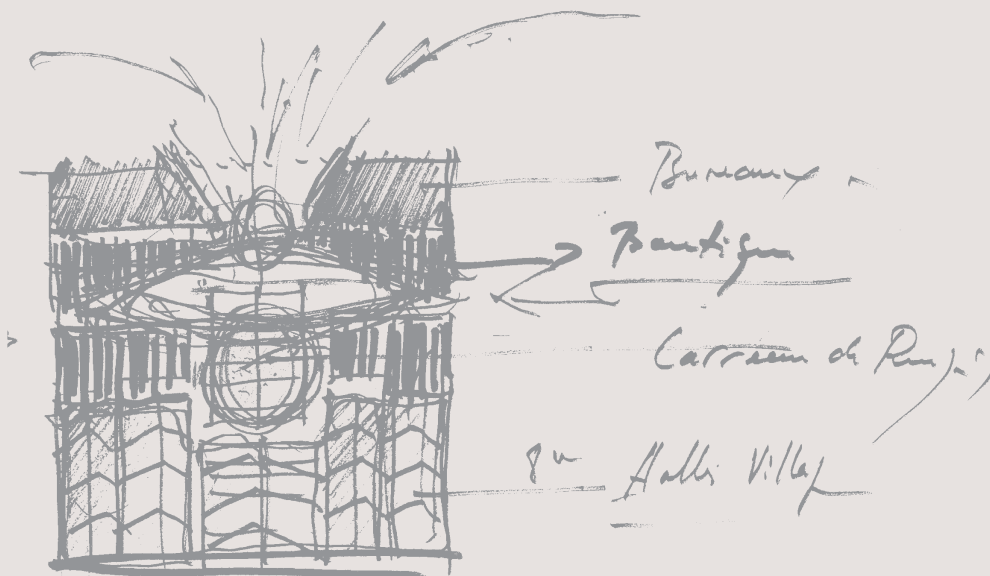 Bureaux
Boutique
Carreau de Rungis
8m Halle Villag